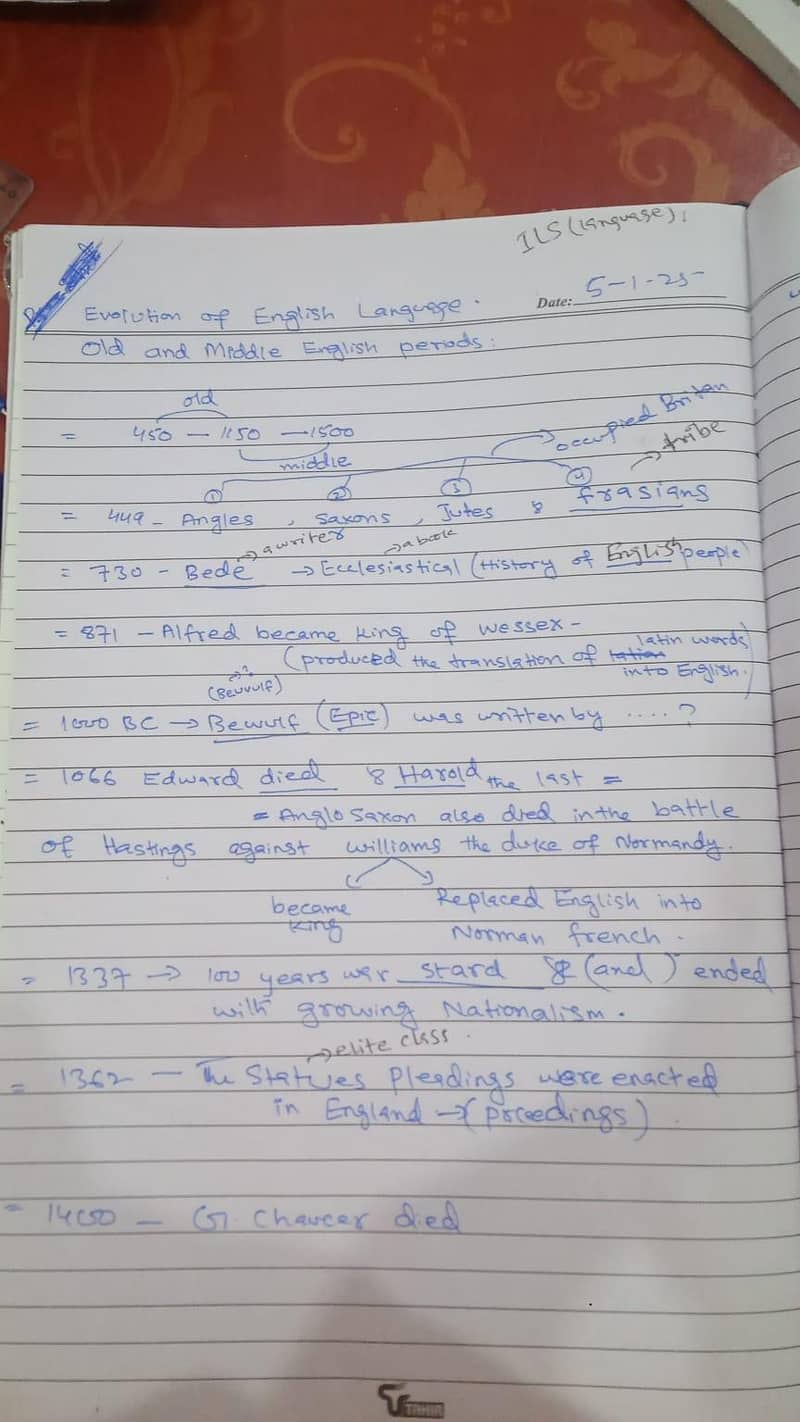 ILS (Language):
Date: 5-1-25
Evolution of English Language.
Old and Middle English periods:
old
= 450 — 1150 — 1500
middle
occupied Britan
tribe
① ② ③ ④
= 449 - Angles, Saxons, Jutes & frasians
→ a writer → a book
= 730 - Bede → Ecclesiastical (History of English people)
= 871 - Alfred became king of wessex -
(produced the translation of latin words
into English.)
(Beuwulf)
= 1000 BC → Bewulf (Epic) was written by ....?
= 1066 Edward died & Harold the last =
= Anglo Saxon also died in the battle
of Hastings against williams the duke of Normandy.
became king
Replaced English into
Norman french.
= 1337 → 100 years war stard & (and) ended
with growing Nationalism.
→ elite class.
= 1362 - The Statues Pleadings were enacted
in England → (proceedings).
= 1400 - G. Chaucer died
TAHIR